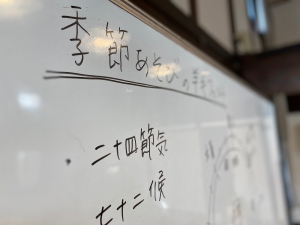 季節あそびの
二十四節気
七十二候